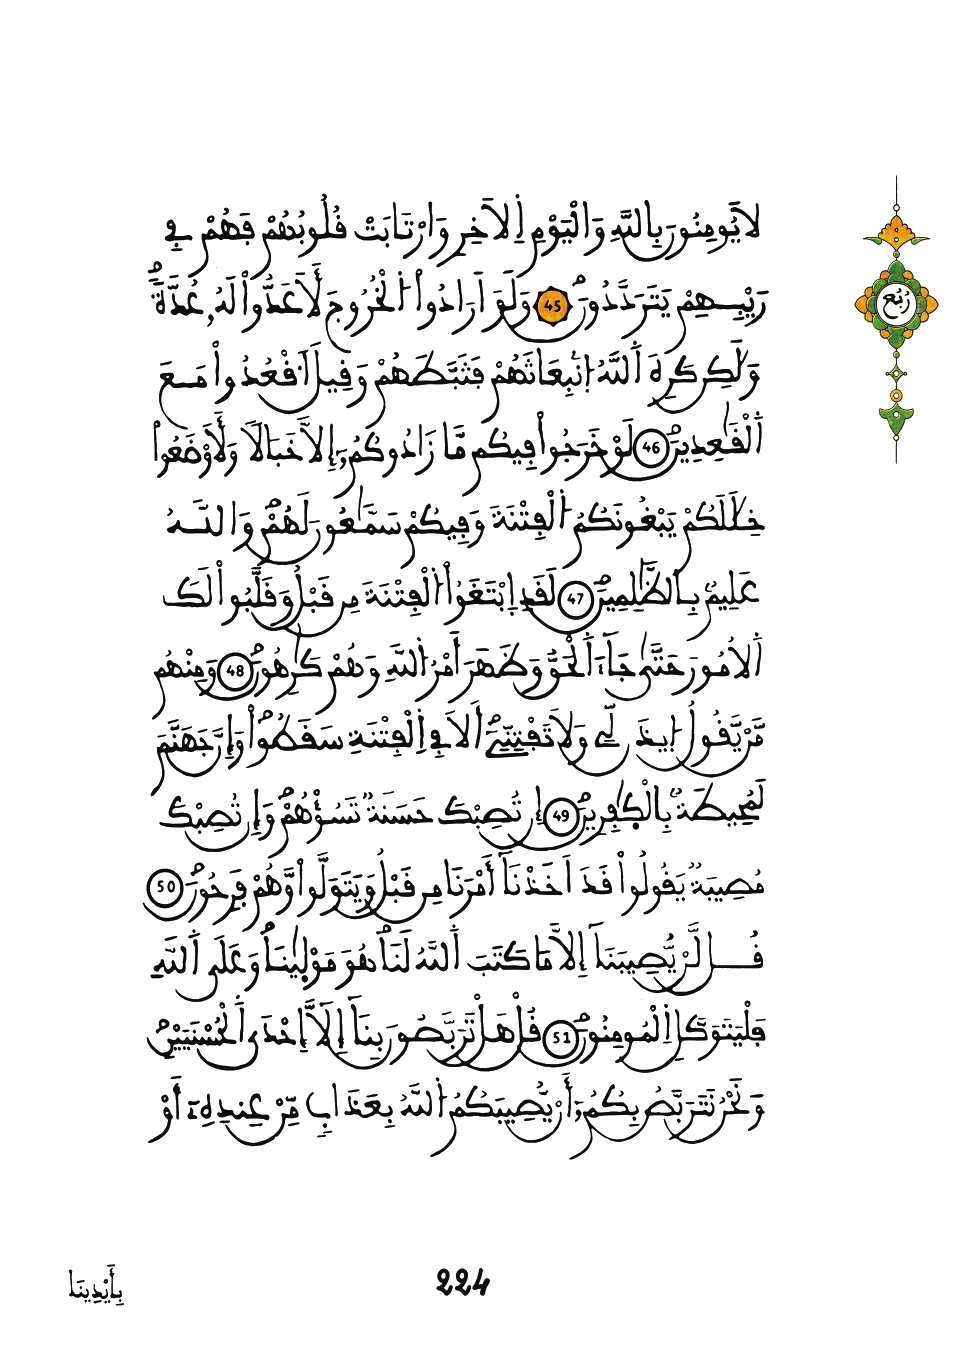 لَا يُومِنُونَ بِاللَّهِ وَالْيَوْمِ اِلَاخِرِ وَارْتَابَتْ قُلُوبُهُمْ فَهُمْ فِي
رَيْبِهِمْ يَتَرَدَّدُونَ 45 وَلَوَ اَرَادُواْ اُلْخُرُوجَ لَأَعَدُّواْ لَهُۥ عُدَّةً
وَلَٰكِن كَرِهَ اَللَّهُ اُنۢبِعَاثَهُمْ فَثَبَّطَهُمْ وَقِيلَ اَقْعُدُواْ مَعَ
اَلْقَٰعِدِينَ 46 لَوْ خَرَجُواْ فِيكُم مَّا زَادُوكُمُۥٓ إِلَّا خَبَالًا وَلَأَوْضَعُواْ
خِلَٰلَكُمْ يَبْغُونَكُمُ اُلْفِتْنَةَ وَفِيكُمْ سَمَّٰعُونَ لَهُمْ وَاللَّهُ
عَلِيمٌۢ بِالظَّٰلِمِينَ 47 لَقَدِ اِبْتَغَوُاْ اُلْفِتْنَةَ مِن قَبْلُ وَقَلَّبُواْ لَكَ
اَلُامُورَ حَتَّىٰ جَآءَ اَلْحَقُّ وَظَهَرَ أَمْرُ اُللَّهِ وَهُمْ كَٰرِهُونَ 48 وَمِنْهُم
مَّنْ يَّقُولُ اُيذَن لِّي وَلَا تَفْتِنِّيٓ أَلَا فِي اِلْفِتْنَةِ سَقَطُواْ وَإِنَّ جَهَنَّمَ
لَمُحِيطَةٌۢ بِالْكَٰفِرِينَ 49 إِن تُصِبْكَ حَسَنَةٌ تَسُؤْهُمْ وَإِن تُصِبْكَ
مُصِيبَةٌ يَقُولُواْ قَدَ اَخَذْنَآ أَمْرَنَا مِن قَبْلُ وَيَتَوَلَّواْ وَّهُمْ فَرِحُونَ 50
قُل لَّنْ يُّصِيبَنَآ إِلَّا مَا كَتَبَ اَللَّهُ لَنَا هُوَ مَوْلَىٰنَا وَعَلَى اَللَّهِ
فَلْيَتَوَكَّلِ اِلْمُومِنُونَ 51 قُلْ هَلْ تَرَبَّصُونَ بِنَآ إِلَّآ إِحْدَى اَلْحُسْنَيَيْنِ
وَنَحْنُ نَتَرَبَّصُ بِكُمُۥٓ أَنْ يُّصِيبَكُمُ اُللَّهُ بِعَذَابٍ مِّنْ عِندِهِۦٓ أَوْ
رُبُع
بِأَيْدِينَا
224